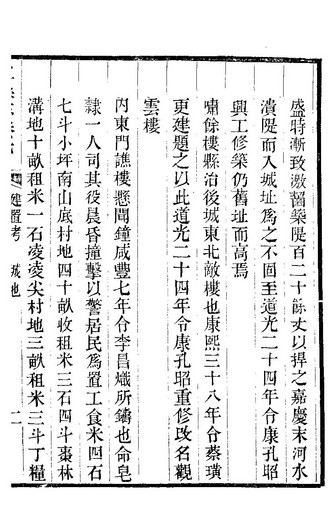 盛時漸致激齧築隄百二十餘丈以捍之嘉慶末河水
潰隄而入城址為之不固至道光二十四年令康孔昭
興工修築仍舊址而高焉
嘯餘樓縣治後城東北敵樓也康熙三十八年令蔡璜
更建題之以此道光二十四年令康孔昭重修改名觀
雲樓
內東門譙樓懸閣鐘咸豐七年令李昌熾所鑄也命皂
隸一人司其役晨昏撞擊以警居民為置工食米四石
七斗小坪南山底村地四十畝收租米三石四斗棗林
溝地十畝租米一石凌凌尖村地三畝租米三斗丁糧
建置考 城池 二